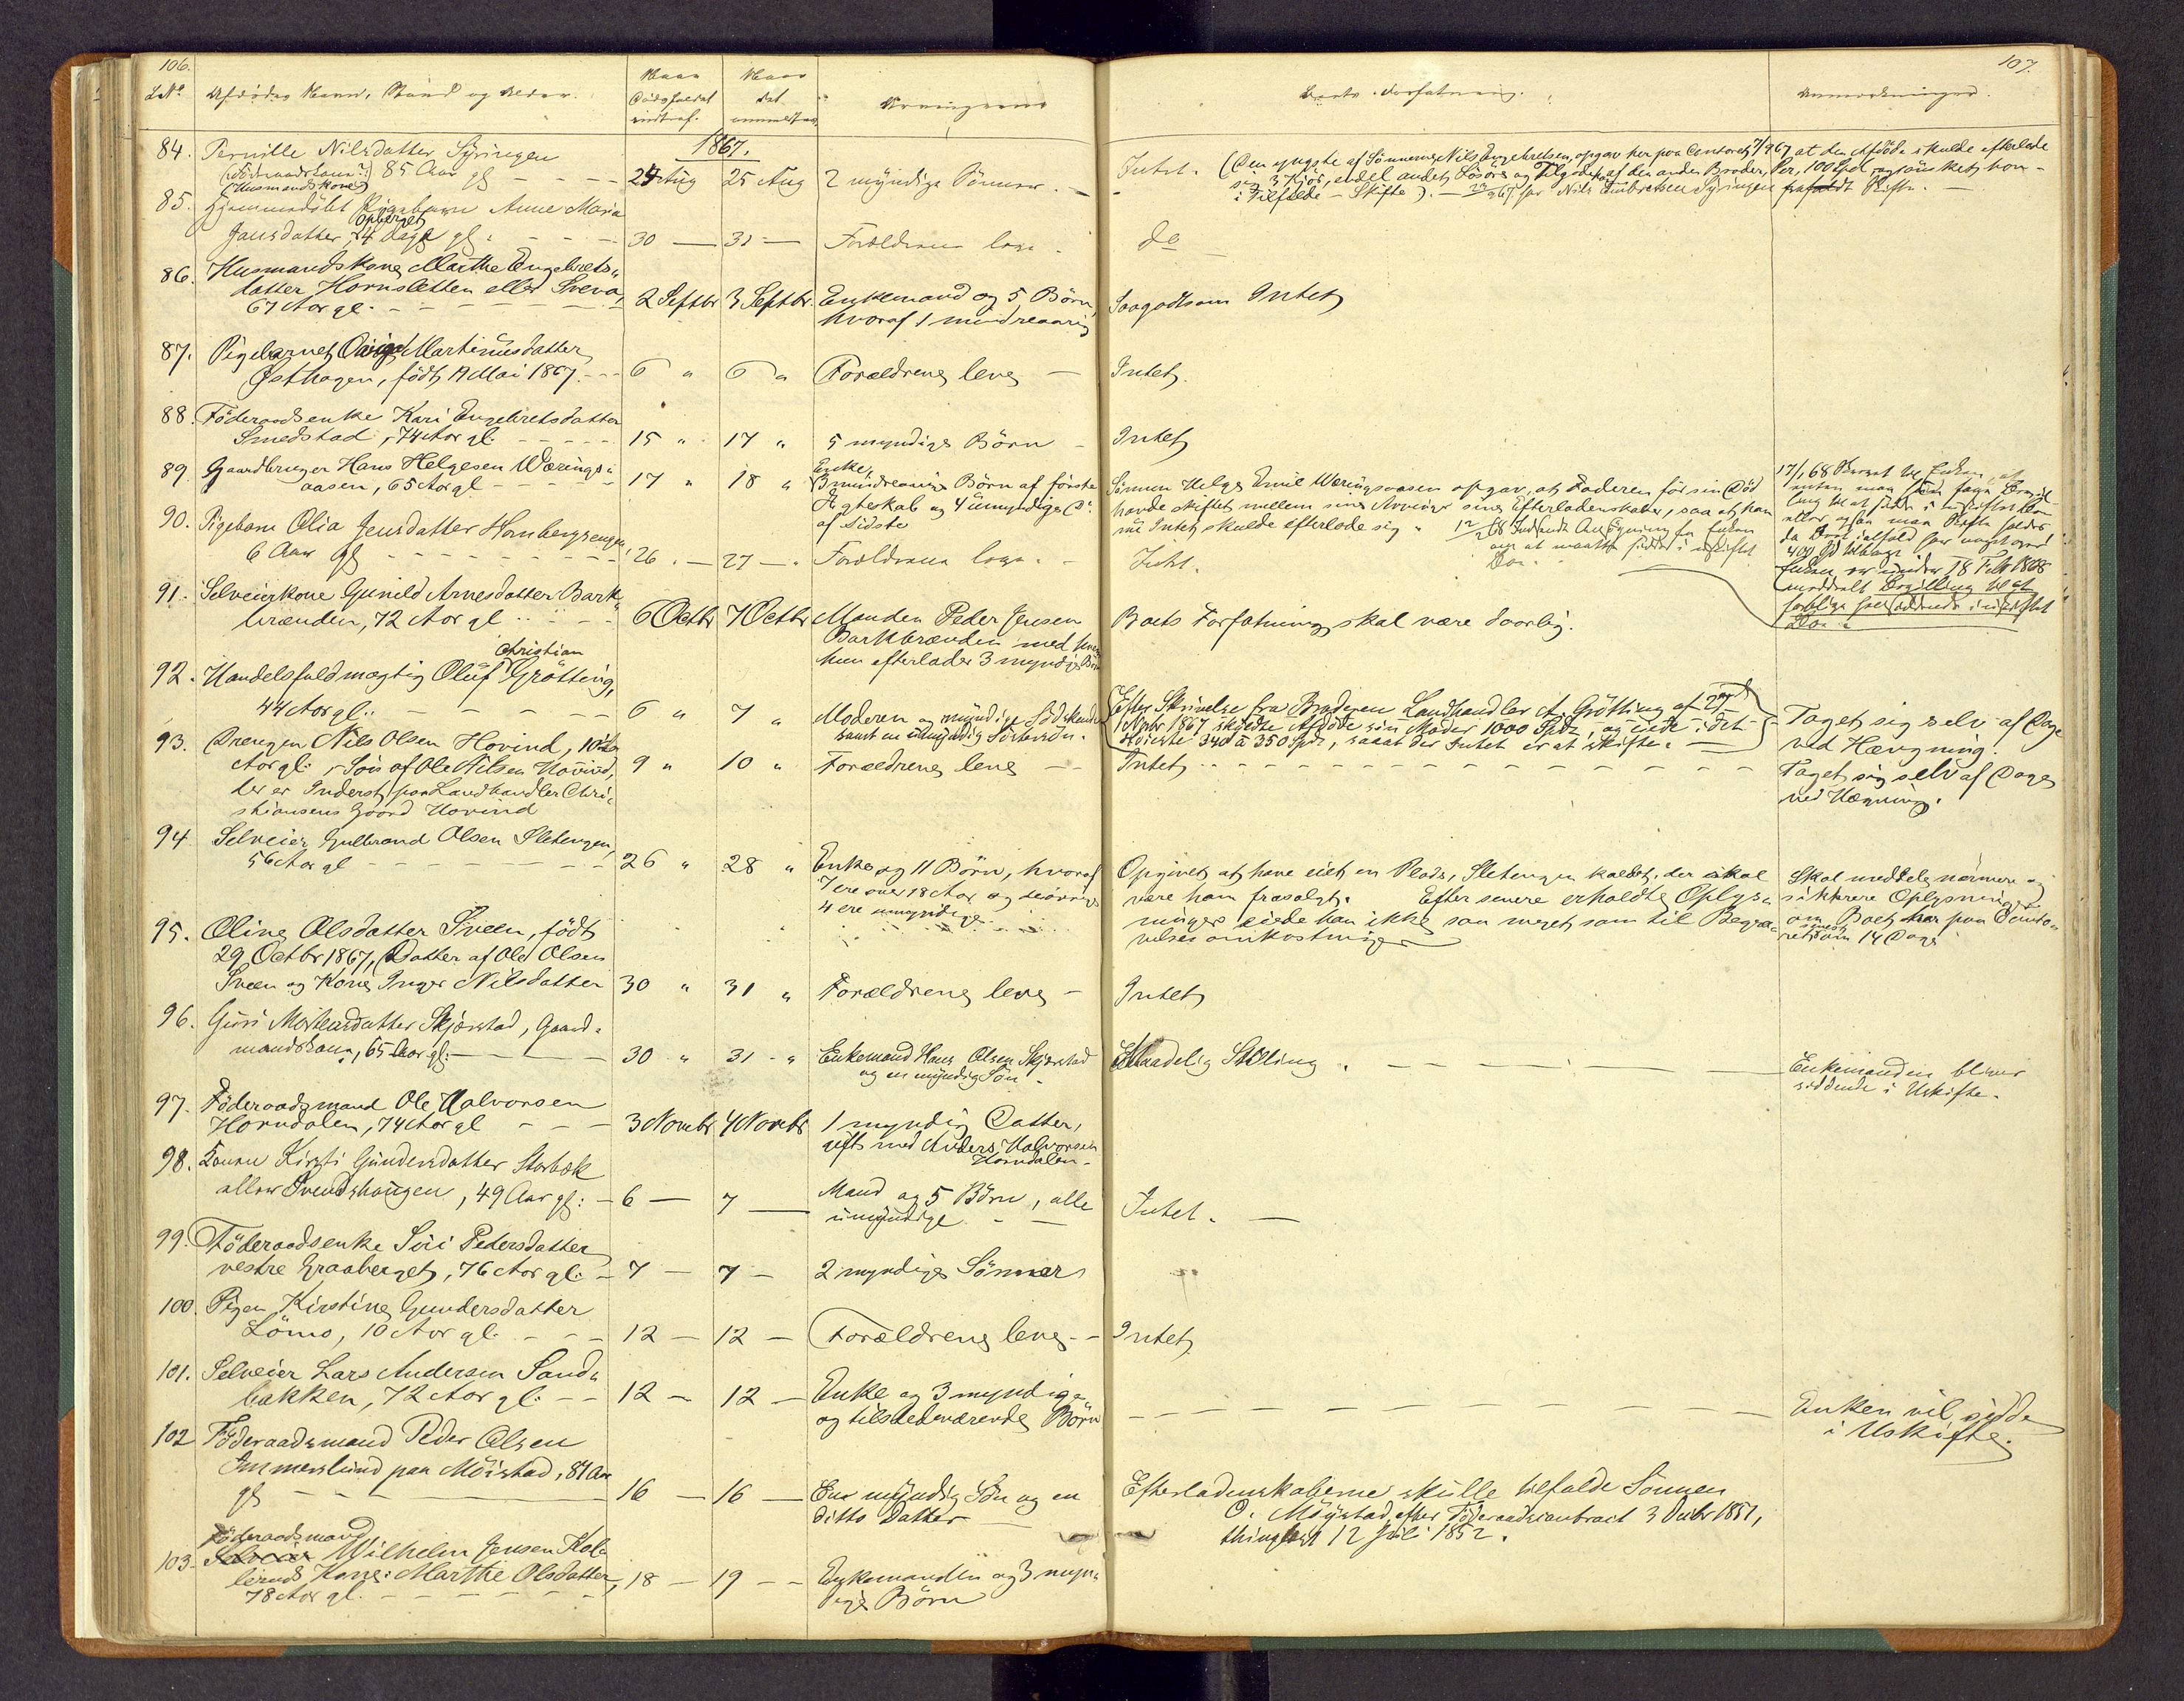 106.
107.
LNo
Afdødes Navn, Stand og Alder.
Naar Dødsfaldet indtraf.
Naar det anmeldtes
Arvingerne
Boets Forfatning.
Anmærkninger.
1867.
84. Pernille Nilsdatter Syringen
(Föderaadskone) 85 Aar gl
(Husmandskone)
24 Aug
25 Aug
2 myndige Sønner.
Intet. (Den yngste af Sönnerne, Nils Engebretsen, opgav her paa Contoret 7/9 67 at den Afdöde skulde efterlade
sig 3 Kjör, endel andet Lösöre og tilgode hos af den anden Broder, Per, 100 Spd. og önsket han
i Tilfælde - Skifte). Nils Embretsen Syringen frafaldt Skifte.
85. Hjemmedöbt Pigebarn Anne Maria
opberget
Jansdatter, 14 Dage gl.
30 — 31 —
Forældrene leve.
do
86. Husmandskone Marthe Engebrets-
datter Hornsletten eller Sveva,
67 Aar gl.
2 Septbr
3 Septbr.
Enkemand og 5 Börn,
hvoraf 1 mindreaarig
Saagodtsom Intet
87. Pigebarnet Martinusdatter
Østhagen, födt 17 Mai 1867.
6 "
6 "
Forældrene leve
Intet.
88. Föderaadsenke Kari Engebretsdatter
Smedstad, 74 Aar gl.
15 "
17 "
5 myndige Börn
Intet
89. Gaardbruger Hans Helgesen Wærings-
aasen, 65 Aar gl
17 "
18 "
Enke,
3 mindreaarige Börn af förste
Ægteskab og 4 umyndige Do
af sidste
Sönnen Helge Emil Weringsaasen opgav, at Faderen för sin Död
havde skiftet mellem sine Arvinger sine Efterladenskaber, saa at han
nu Intet skulde efterlade sig. Indsendt Ansögning fra Enken
om at maatte sidde i uskiftet
Bo.
17/1 68 Skrevet til Enken, at
enten maa hun søge Bevil-
ling til at sidde i uskiftet Bo
eller ogsaa maa Skifte holdes
da Boet ialfald har noget over
400 Spd tilbage
Enken er under 18 Febr 1868
meddelt Bevilling til at
forblive hensiddende i uskiftet
Bo.
90. Pigebarn Olia Jensdatter Hornbergsengen,
6 Aar gl
26. —
27 —.
Forældrene leve.
Intet.
91. Selveierkone Gunild Arnesdatter Bark-
brænden, 72 Aar gl
6 Octbr
7 Octbr
Manden Peder Jensen
Barkbrænden med hvem
hun efterlader 3 myndige Börn
Boets Forfatning skal være daarlig.
92. Handelsfuldmægtig Oluf Christian Grötting,
44 Aar gl.
6 "
7 "
Moderen og myndige Södskende
samt en umyndig Söstersön.
Efter Skrivelse fra Broderen Landhandler A. Grötting af 2den
Novbr 1867 skyldte Afdöde sin Moder 1000 Spd, og eiede i det
Höieste 340 à 350 Spd, saaat der Intet er at skifte.
Taget sig selv af Dage
ved Hængning.
93. Drengen Nils Olsen Hovind, 10
Aar gl., Sön af Ole Nilsen Hovind,
der er Inderst paa Landhandler Chri-
stiansens Gaard Hovind
9 "
10 "
Forældrene leve
Intet
Taget sig selv af Dage
ved Hængning.
94. Selveier Gulbrand Olsen Sletengen,
56 Aar gl
26 "
28 "
Enke og 11 Börn, hvoraf
7 ere over 18 Aar og de övrige
4 ere umyndige.
Opgivet at have eiet en Plads, Sletengen kaldet, der skal
være ham frasolgt. Efter senere erholdte Oplys-
ninger eiede han ikke saa meget som til Begra-
velsesomkostninger
Skal meddele nærmere og
sikkrere Oplysninger
om Boet her paa Conto-
ret om 14 Dage
95. Oline Olsdatter Sveen, födt
29 Octbr 1867, Datter af Ole Olsen
Sveen og Kone Inger Nilsdatter
30 "
31 "
Forældrene leve
Intet
96. Guri Mortensdatter Skjærstad, Gaard-
mandskone, 65 Aar gl.
30 "
31 "
Enkemand Hans Olsen Skjærstad
og en myndig Sön.
Maadelig Stilling.
Enkemanden bliver
siddende i Uskifte.
97. Föderaadsmand Ole Halvorsen
Horndalen, 74 Aar gl
3 Novbr
4 Novbr
1 myndig Datter,
gift med Anders Halvorsen
Horndalen.
98. Konen Kirsti Gundersdatter Storbæk
eller Svendshaugen, 49 Aar gl.
6 —
7 —
Mand og 5 Börn, alle
umyndige
Intet.
99. Föderaadsenke Siri Pedersdatter
vestre Graaberget, 76 Aar gl.
7 —
7 —
2 myndige Sönner
100. Pigen Kirstine Gundersdatter
Lömo, 10 Aar gl.
12 —
12 —
Forældrene leve
Intet
101. Selveier Lars Andersen Sand-
bakken, 72 Aar gl.
12 —
12 —
Enke og 3 myndige
og tilstedeværende Börn
Enken vil sidde
i Uskifte.
102 Föderaadsmand Peder Olsen
Immerslund paa Möistad, 81 Aar
gl
16 —
16 —
En myndig Sön og en
ditto Datter
Efterladenskaberne skulle tilfalde Sönnen
O. Möystad, efter Föderaadscontract 3 Decbr 1851,
thinglæst 12 Juli 1852.
103. Föderaadsmand
Selveier Wilhelm Jensen Kol-
lerud Kone: Marthe Olsdatter,
78 Aar gl.
18 —
19 —
Enkemanden og 3 myn-
dige Börn